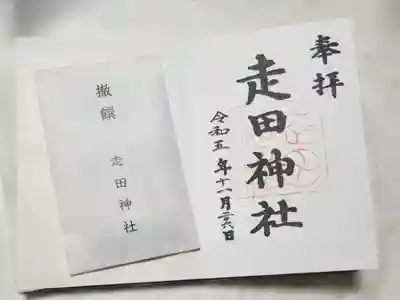 奉拝
走田神社
令和五年十一月六日
撤饌
走田神社